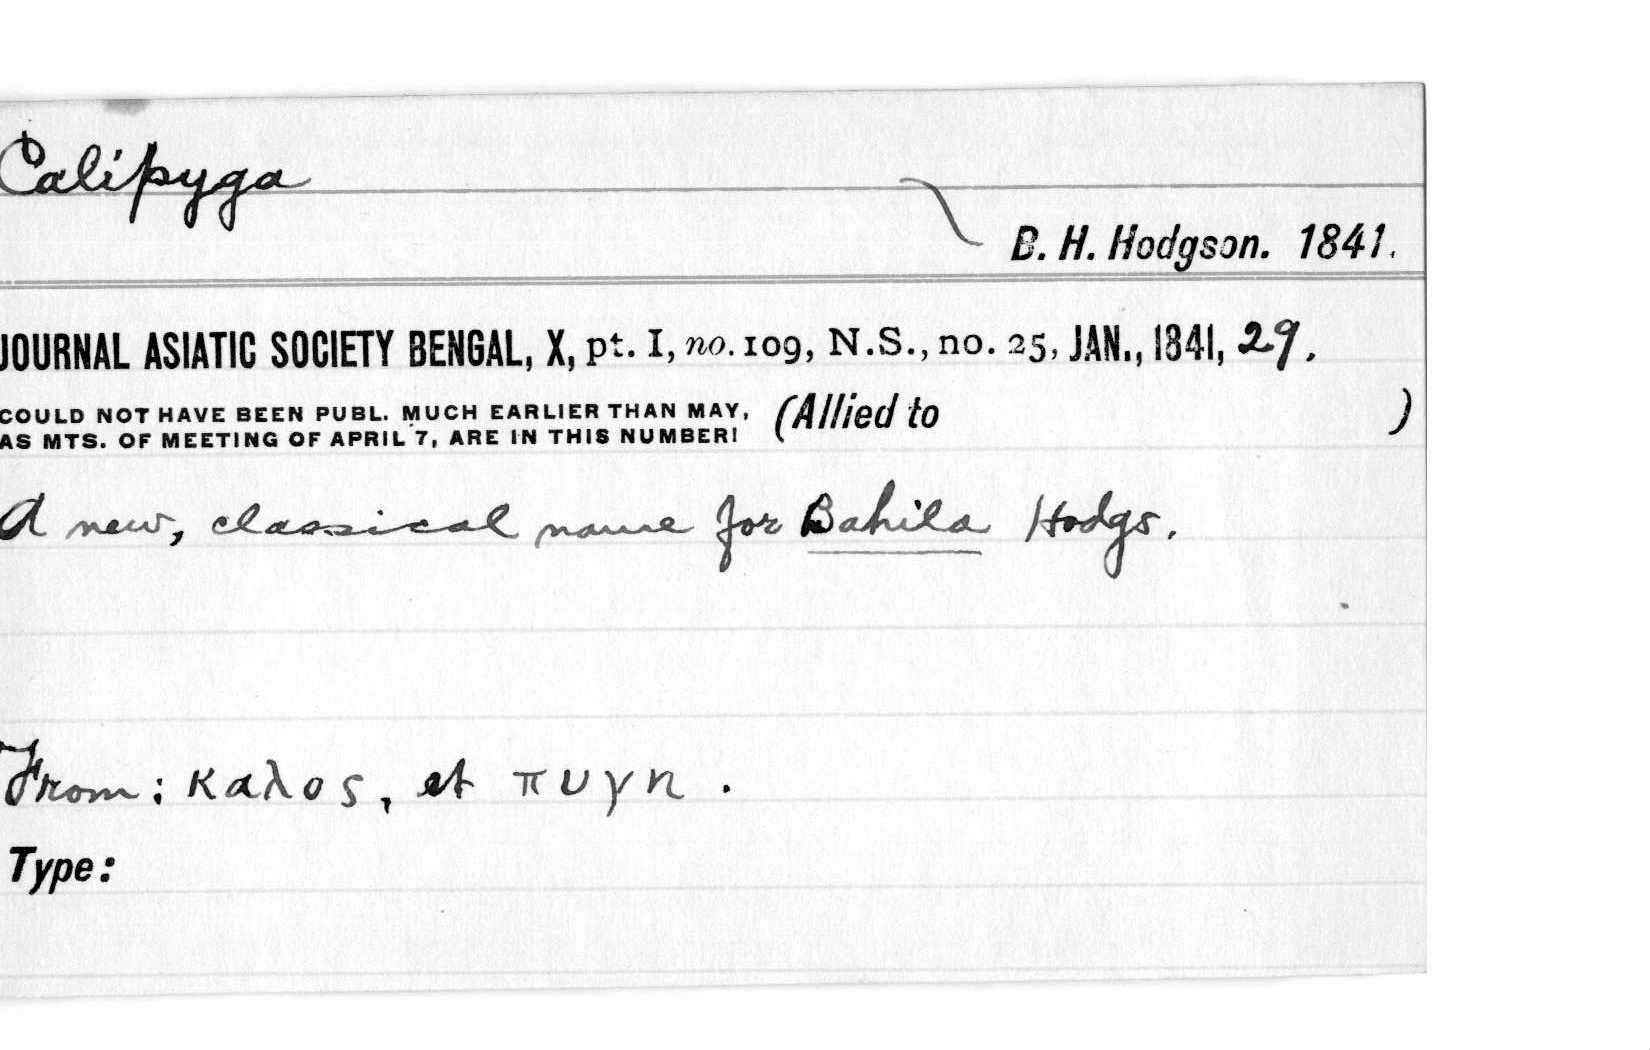 Calipyga
B. H. Hodgson. 1841.
JOURNAL ASIATIC SOCIETY BENGAL, X, pt. I, no. 109, N.S., no. 25, JAN., 1841, 29.
COULD NOT HAVE BEEN PUBL. MUCH EARLIER THAN MAY,
AS MTS. OF MEETING OF APRIL 7, ARE IN THIS NUMBER!
(Allied to )
A new, classical name for Bahila Hodgs.
From: καλος, et πυγη.
Type: